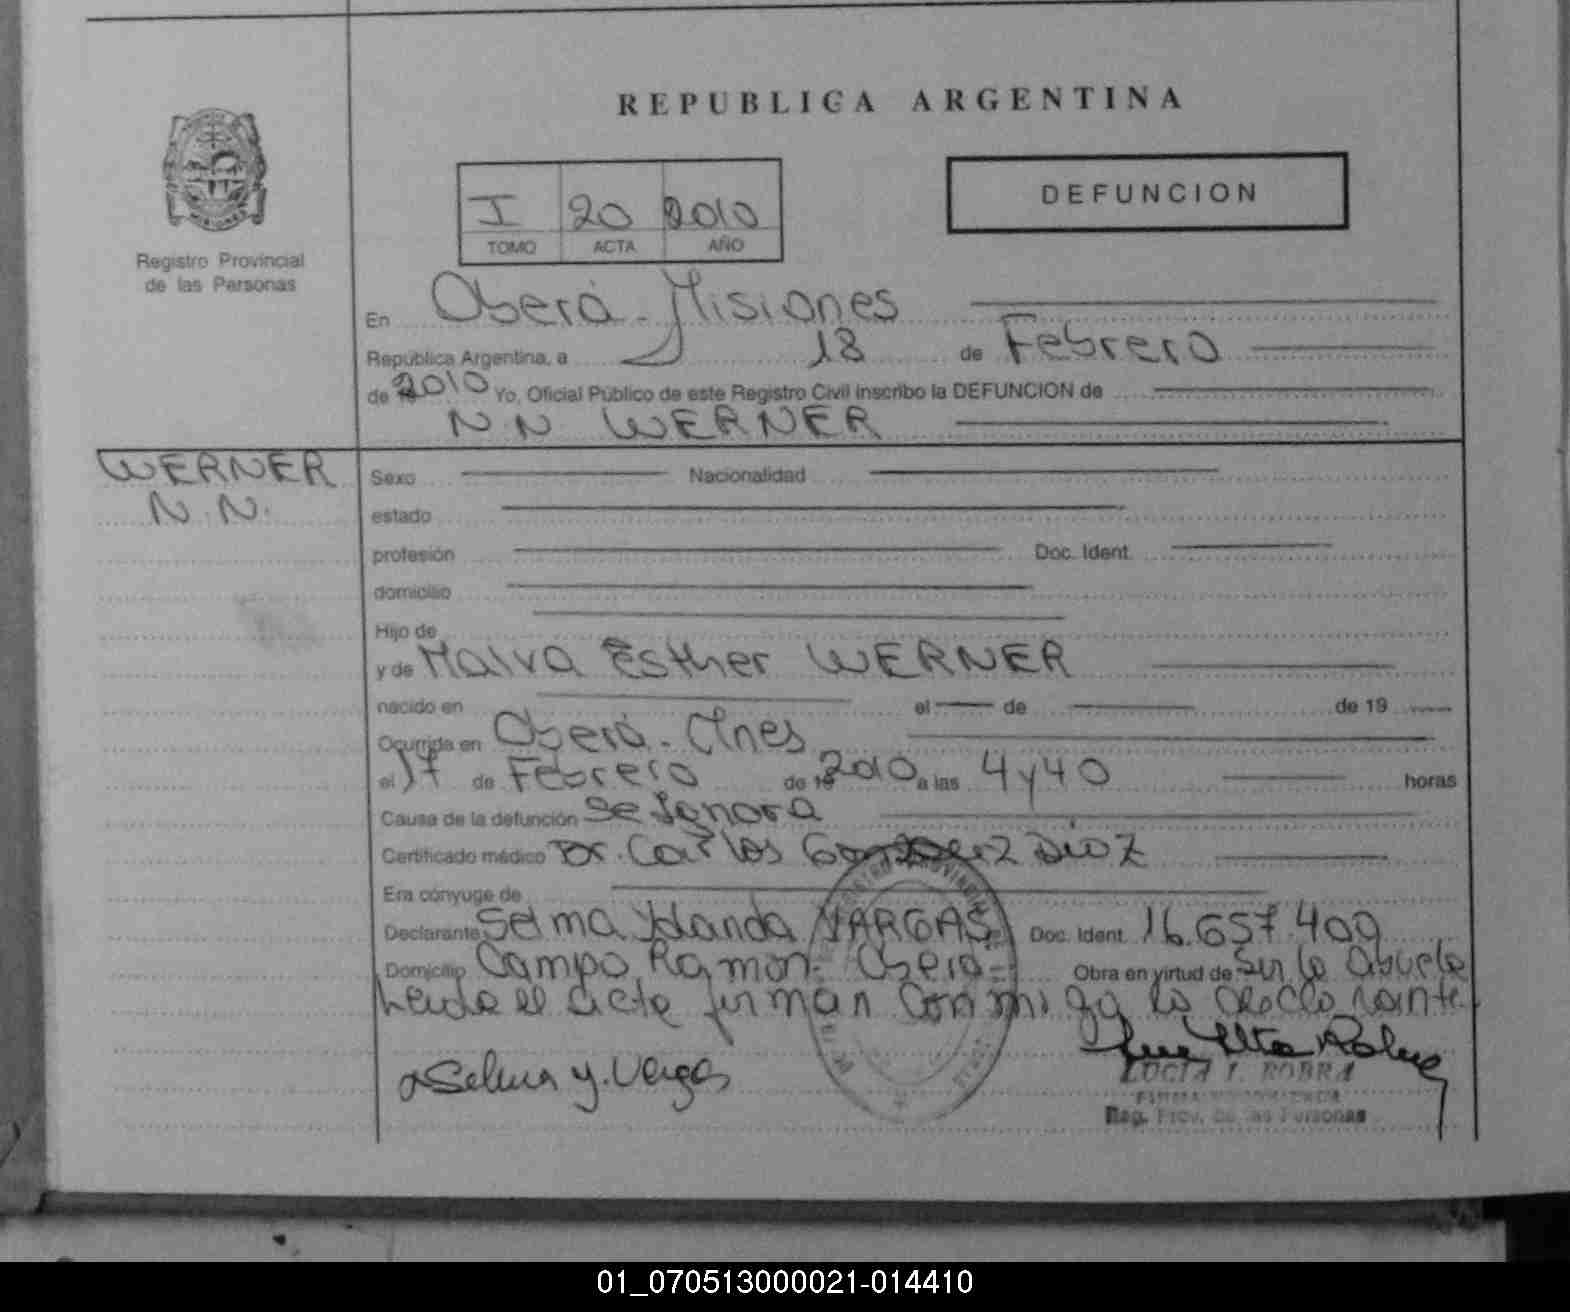 REPUBLICA ARGENTINA
I 20 2010
TOMO ACTA AÑO
DEFUNCION
Registro Provincial
de las Personas
En Oberá - Misiones
República Argentina, a 18 de Febrero
de 2010 Yo, Oficial Público de este Registro Civil inscribo la DEFUNCION de
N N WERNER
WERNER
N.N.
Sexo Nacionalidad
estado
profesión Doc. Ident.
domicilio
Hijo de
y de Malva Esther WERNER
nacido en el de de 19
Ocurrida en Oberá - Mnes
el 17 de Febrero de 2010 a las 4 y 40 horas
Causa de la defunción Se Ignora
Certificado médico Dr. Carlos Diaz
Era cónyuge de
Declarante Selma Yolanda VARGAS Doc. Ident. 16.657.409
Domicilio Campo Ramon - Oberá - Obra en virtud de Ser la abuela
leida el acta firman conmigo la declarante
Selma y. Vargas
LUCIA I. ROBRA
Reg. Prov. de las Personas
01_070513000021-014410